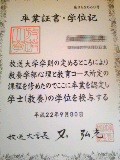 卒業証書・学位記
放送大学学則の定めるところにより
教養学部心理と教育コース所定の
課程を修めたのでここに卒業を認定し
学士(教養)の学位を授与する
平成22年9月30日
放送大学長